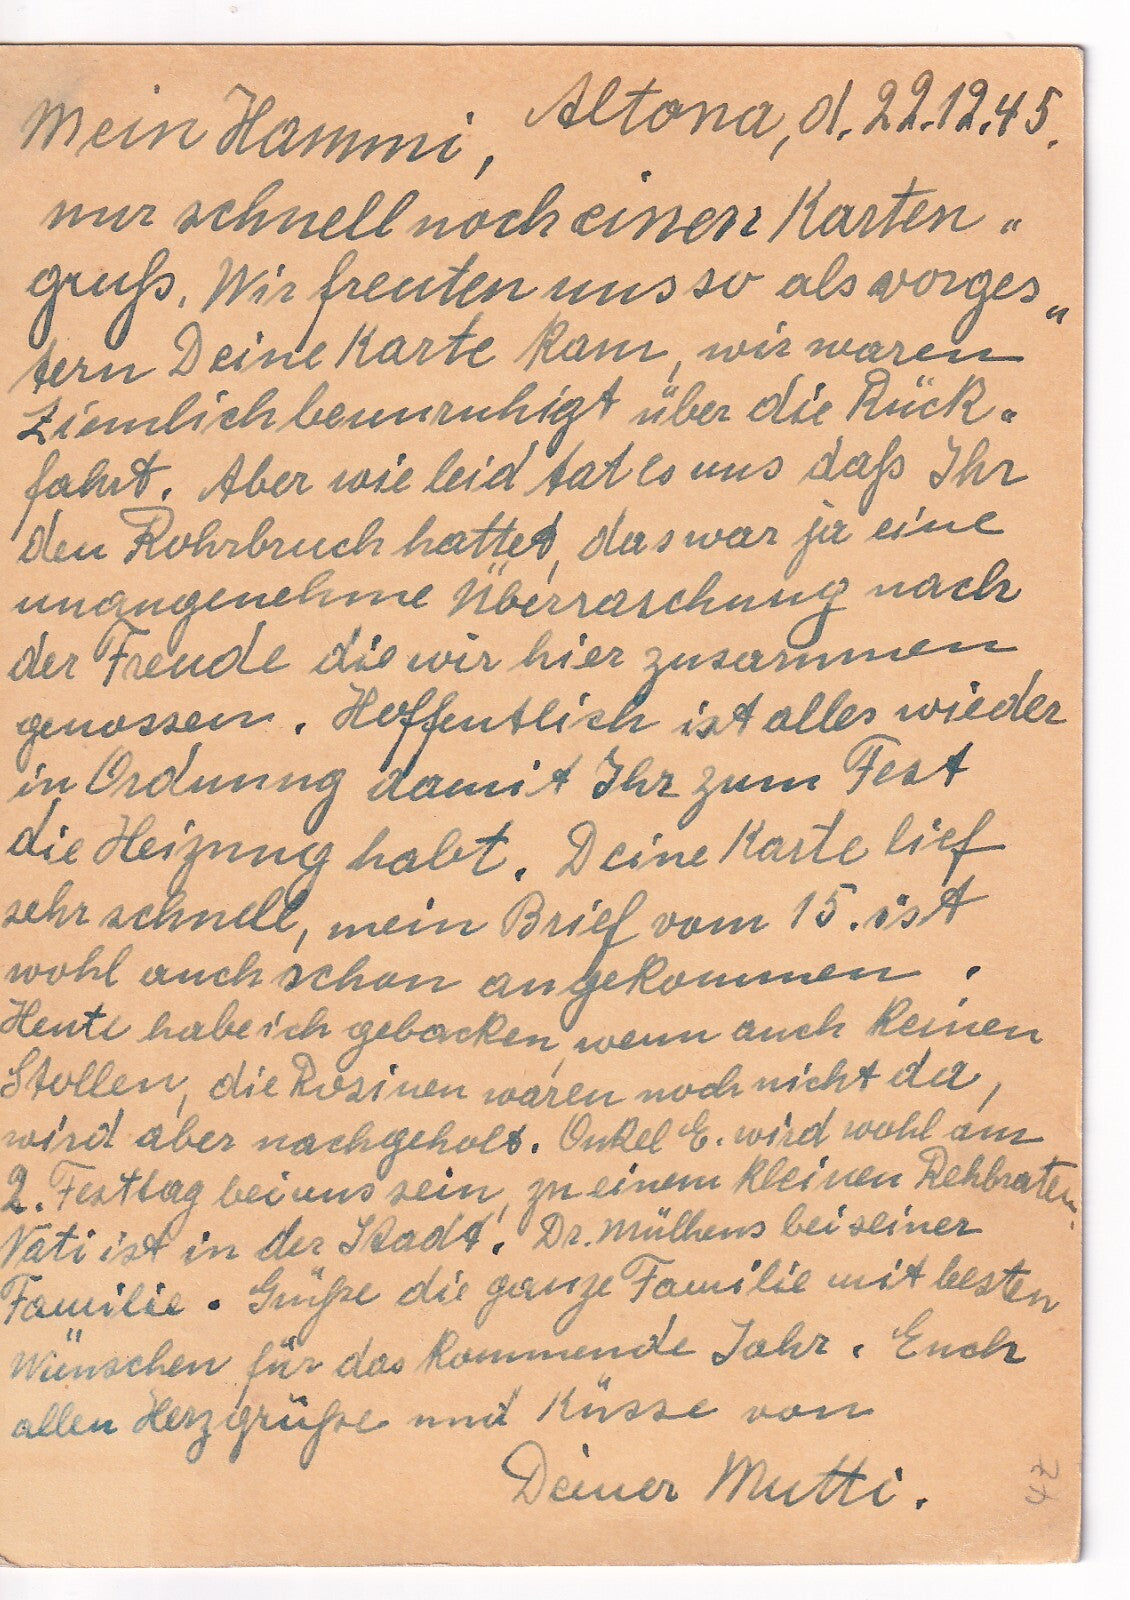 Altona, d. 22.12.45.
Mein Hammi,
nur schnell noch einen Karten "
gruß. Wir freuten uns so als vorges "
tern Deine Karte kam, wir waren
ziemlich beunruhigt über die Rück "
fahrt. Aber wie leid tat es uns daß Ihr
den Rohrbruch hattet, das war ja eine
unangenehme Überraschung nach
der Freude die wir hier zusammen
genossen. Hoffentlich ist alles wieder
in Ordnung damit Ihr zum Fest
die Heizung habt. Deine Karte lief
sehr schnell, mein Brief vom 15. ist
wohl auch schon angekommen.
Heute habe ich gebacken, wenn auch keinen
Stollen, die Rosinen waren noch nicht da,
wird aber nachgeholt. Onkel E. wird wohl am
2. Festtag bei uns sein, zu einem kleinen Rehbraten.
Vati ist in der Stadt. Dr. Mülhens bei seiner
Familie. Grüße die ganze Familie mit besten
Wünschen für das kommende Jahr. Euch
allen Herzgrüße und Küsse von
Deiner Mutti.
42